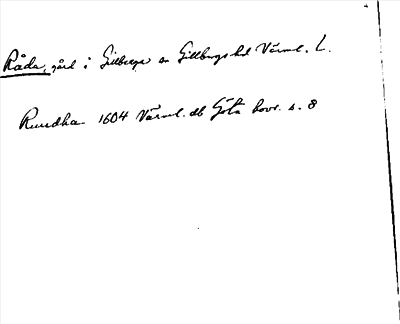 Råda, gård i Gillberga sn Gillbergs hd Värml. L.
Ruudha 1604 Värml. db Göta hovr. s. 8